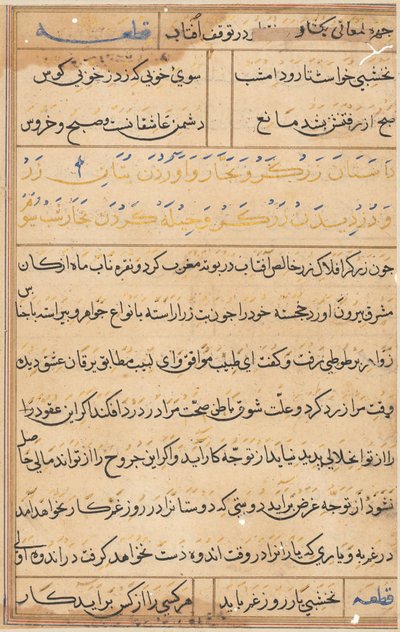 در توقف آفتاب قطعه
نخشبی خواست تا رود امشب سوی خوبی که زد ز خوبی کوس
صبح از رفتنش بشد مانع دشمن عاشقانست صبح و خروس
داستان زرگر و نجار و آوردن بتان زر
و دزدیدن زرگر و حیله کردن نجار
چون زرگر افلاک زر خالص آفتاب در بوته مغرب کرد و نقره ناب ماه از کان
مشرق بیرون آورد خجسته خود را چون بت زر آراسته بانواع جواهر و پیراسته باجناس
زواهر بر طوطی رفت و کفت ای طبیب موافق و ای لبیب مطابق یرقان عشق دیک
وقت مرا زرد کرد و علت شوق باطن صحت مرا در درد افکند اکر این عقود را
را از تو انحلالی پدید نیاید از توجه کار آید و اکر این جروح را از تو اندمالی حاصل
نشود از توجه غرض برآید دوستی که دوستانرا در روز غم کار نخواهد آمد
در غم به و یاری که یارانرا در وقت اندوه دست نخواهد کرفت در اندوه اولی
قطعه نخشبی یار روز غم باید هر کسی را از کس برآید کار